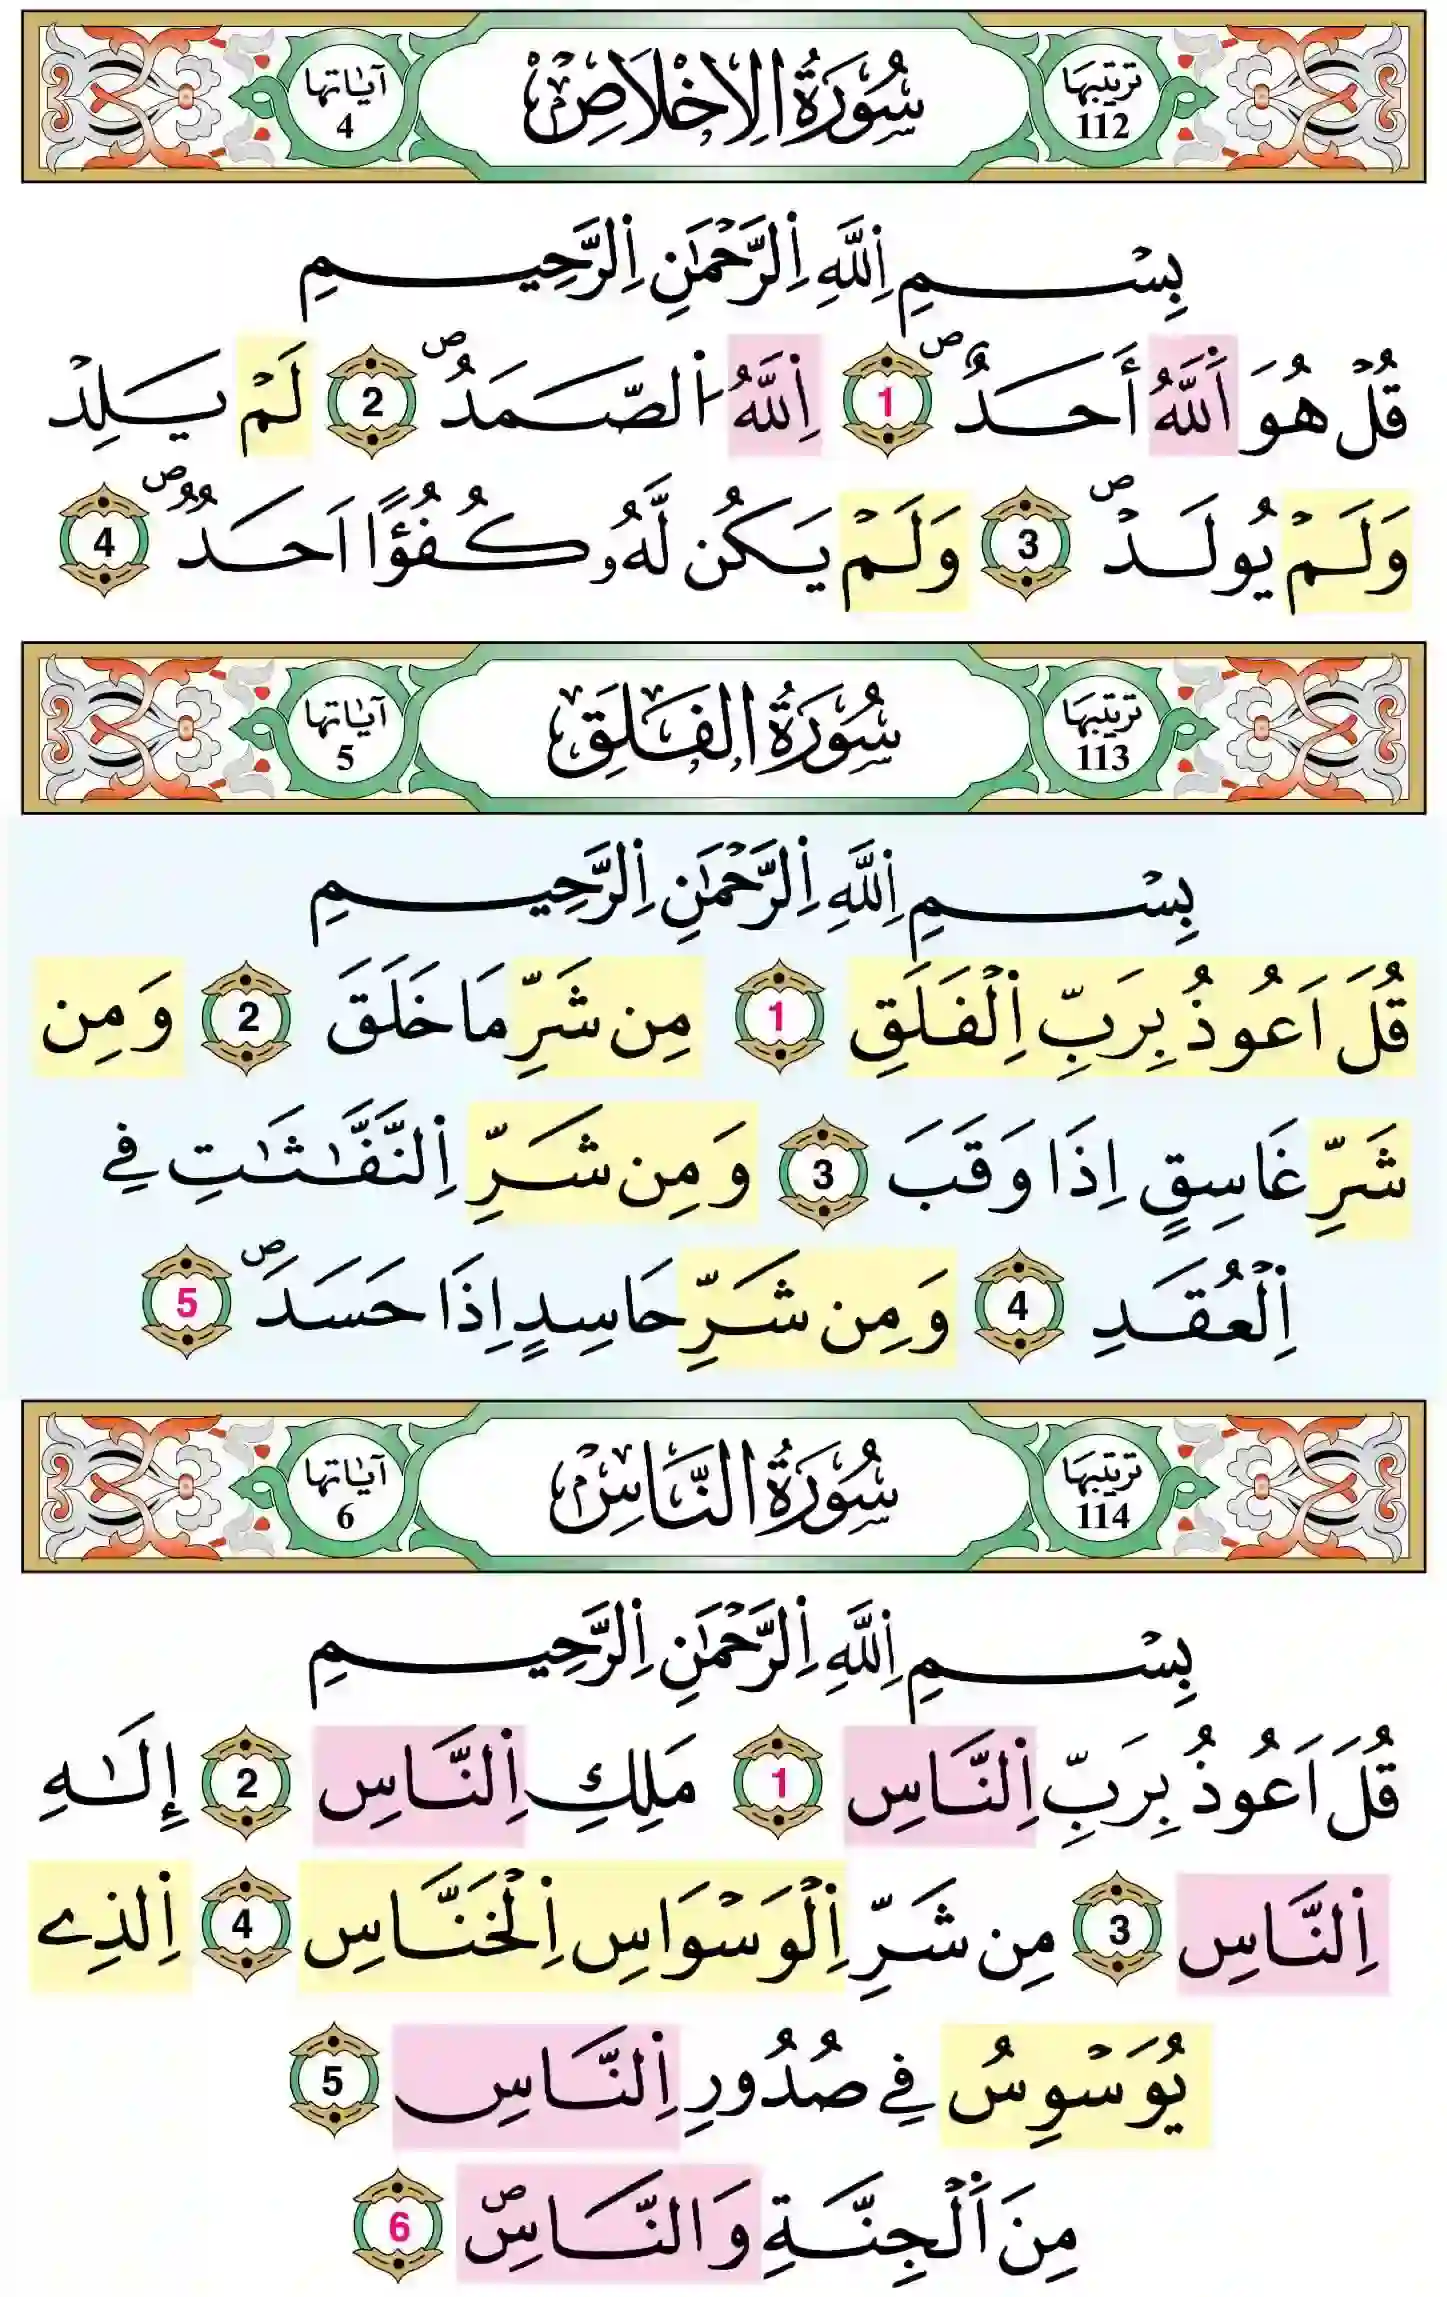 ترتيبها 112 سُورَةُ الِاخْلَاصِ آيَاتها 4
بِسْمِ اِللَّهِ اِلرَّحْمَٰنِ اِلرَّحِيمِ
قُلْ هُوَ اَللَّهُ أَحَدٌ ۖ 1 اِللَّهُ اُلصَّمَدُ ۖ 2 لَمْ يَلِدْ
وَلَمْ يُولَدْ ۖ 3 وَلَمْ يَكُن لَّهُۥ كُفُؤًا اَحَدٌ ۖ 4
ترتيبها 113 سُورَةُ الفَلَقِ آيَاتها 5
بِسْمِ اِللَّهِ اِلرَّحْمَٰنِ اِلرَّحِيمِ
قُلَ اَعُوذُ بِرَبِّ اِلْفَلَقِ 1 مِن شَرِّ مَا خَلَقَ 2 وَمِن
شَرِّ غَاسِقٍ اِذَا وَقَبَ 3 وَمِن شَرِّ اِلنَّفَّٰثَٰتِ فِے
اِلْعُقَدِ 4 وَمِن شَرِّ حَاسِدٍ اِذَا حَسَدَ ۖ 5
ترتيبها 114 سُورَةُ النَّاسِ آيَاتها 6
بِسْمِ اِللَّهِ اِلرَّحْمَٰنِ اِلرَّحِيمِ
قُلَ اَعُوذُ بِرَبِّ اِلنَّاسِ 1 مَلِكِ اِلنَّاسِ 2 إِلَٰهِ
اِلنَّاسِ 3 مِن شَرِّ اِلْوَسْوَاسِ اِلْخَنَّاسِ 4 اِلذِے
يُوَسْوِسُ فِے صُدُورِ اِلنَّاسِ 5
مِنَ اَلْجِنَّةِ وَالنَّاسِ ۖ 6